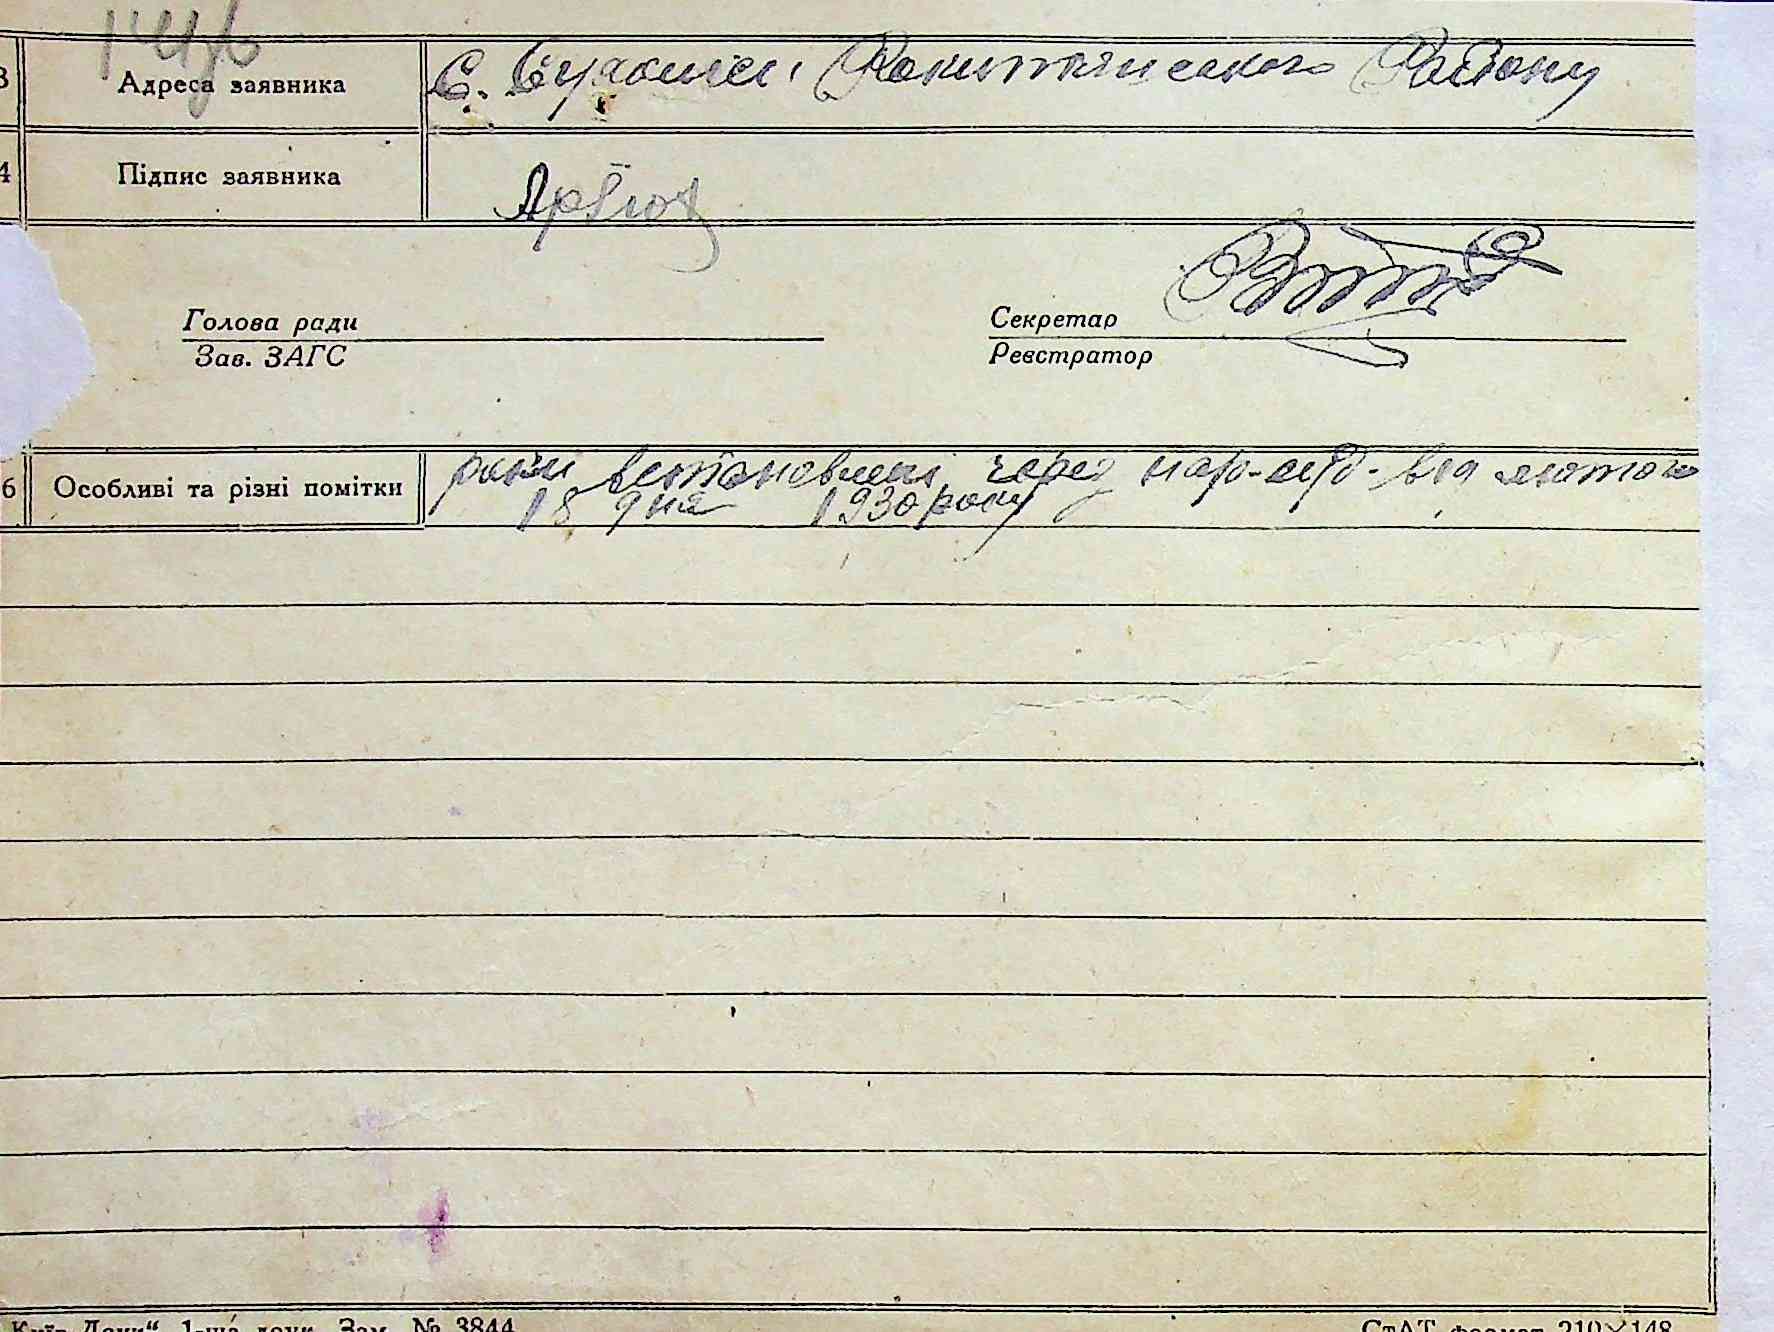 3 Адреса заявника С. Бушеве Рокитянського Району
4 Підпис заявника
Голова ради
Зав. ЗАГС
Секретар
Реєстратор
6 Особливі та різні помітки роки встановлені через нар-суд-від лютого
18 дня 1930 року
Київ-Друк", 1-ша друк. Зам. № 3844
СтАТ формат 210×148